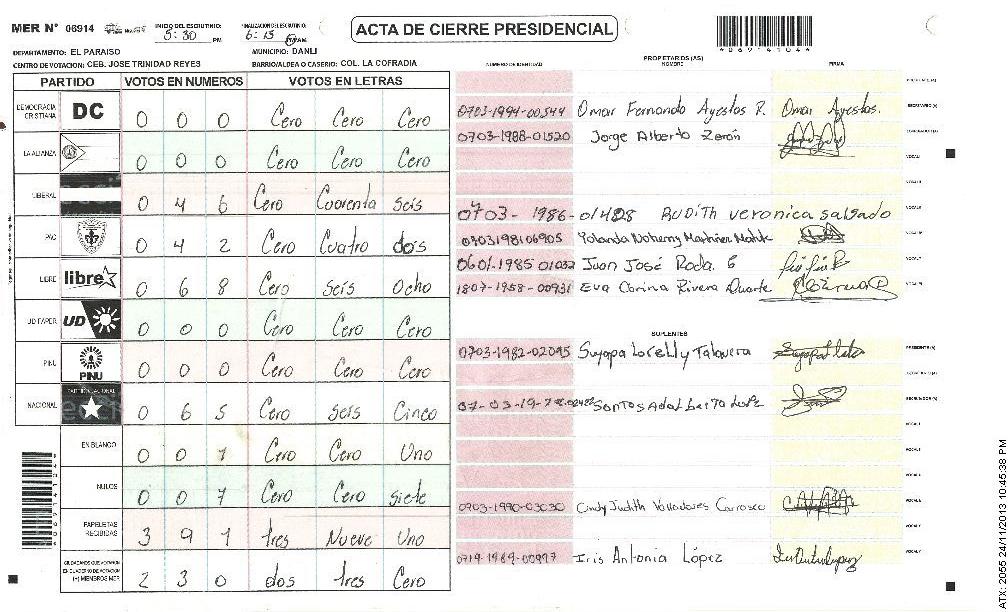 MER Nº 06914
INICIO DEL ESCRUTINIO: 5:30 PM
FINALIZACION DEL ESCRUTINIO: 6:15 PM AM
ACTA DE CIERRE PRESIDENCIAL
4069141044
DEPARTAMENTO: EL PARAISO
MUNICIPIO: DANLI
CENTRO DE VOTACION: CEB. JOSE TRINIDAD REYES
BARRIO/ALDEA O CASERIO: COL. LA COFRADIA
PARTIDO VOTOS EN NUMEROS VOTOS EN LETRAS
DEMOCRACIA CRISTIANA DC 0 0 0 Cero Cero Cero
LA ALIANZA 0 0 0 Cero Cero Cero
LIBERAL 0 4 6 Cero Cuarenta Seis
PAC 0 4 2 Cero Cuatro dos
LIBRE libre 0 6 8 Cero Seis Ocho
UD FAPER UD 0 0 0 Cero Cero Cero
PINU PINU 0 0 0 Cero Cero Cero
NACIONAL PARTIDO NACIONAL 0 6 5 Cero Seis Cinco
EN BLANCO 0 0 1 Cero Cero Uno
NULOS 0 0 7 Cero Cero Siete
PAPELETAS RECIBIDAS 3 9 1 tres Nueve Uno
CIUDADANOS QUE VOTARON EN CUADERNO DE VOTACION (+) MIEMBROS MER 2 3 0 dos tres Cero
PROPIETARIOS (AS)
NUMERO DE IDENTIDAD NOMBRE FIRMA
PRESIDENTE (A)
0703-1994-00544 Omar Fernando Ayestas R. Omar Ayestas. SECRETARIO (A)
0703-1988-01520 Jorge Alberto Zerón
0703-1986-01428 RUDITH veronica salgado
0703198106905 Yolanda Noherny Martinez
0601-1985 01032 Juan José Roda.
1807-1958-00931 Eva Corina Rivera Duarte
SUPLENTES
0703-1982-02095 Suyapa Lorelly Talavera PRESIDENTE (A)
0703-1990-03030 Cindy Judith Valladares Carrasco
0719-1989-00997 Iris Antonia López
ATX: 2055 24/11/2013 10:45:38 PM